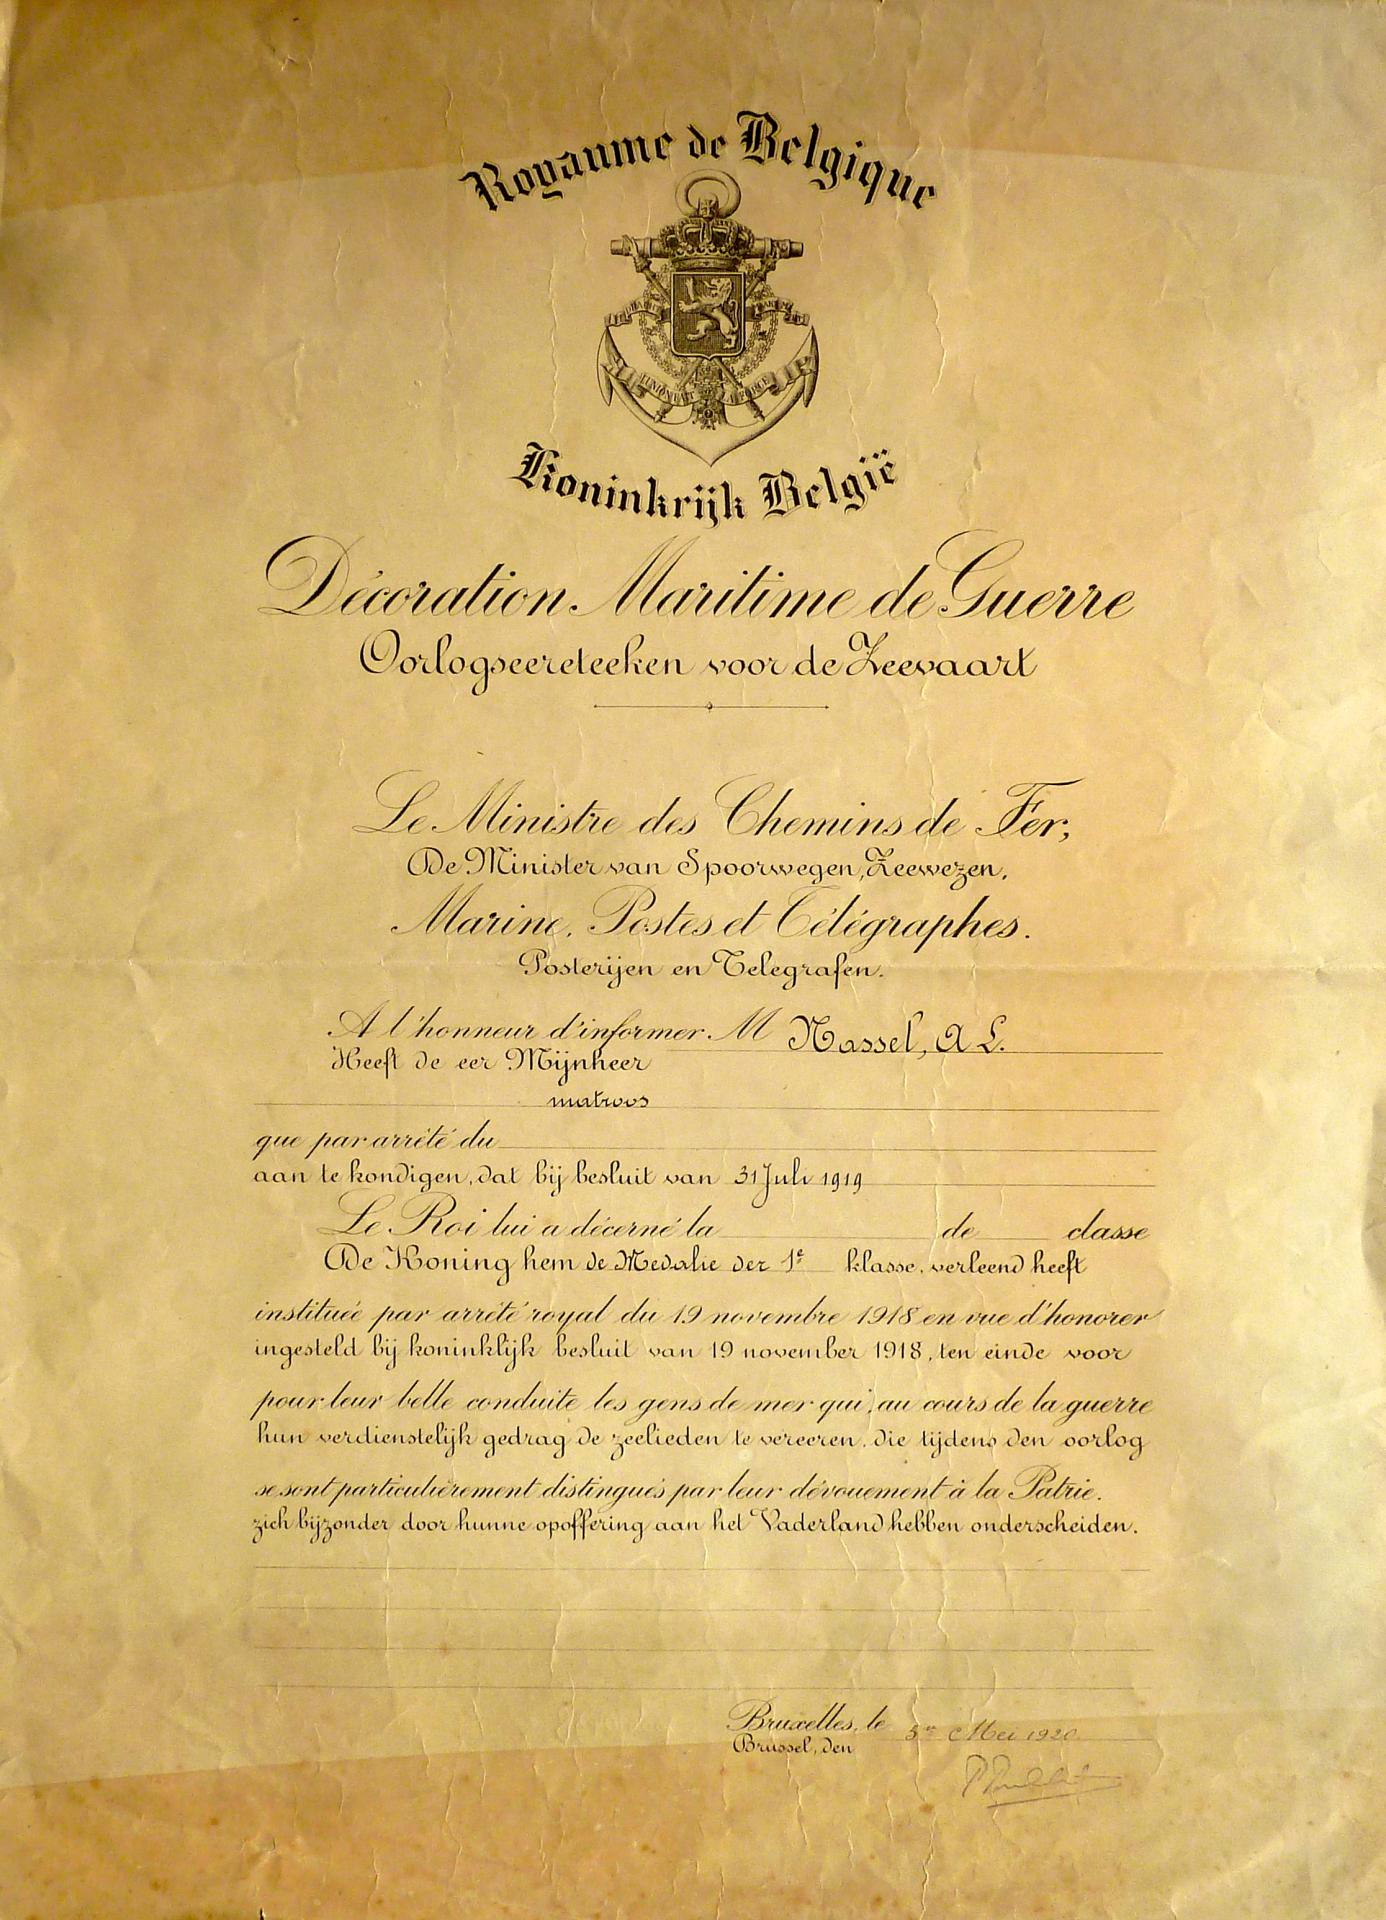 Royaume de Belgique
L'UNION FAIT LA FORCE
Koninkrijk België
Décoration Maritime de Guerre
Oorlogseereteeken voor de Zeevaart
Le Ministre des Chemins de Fer,
De Minister van Spoorwegen, Zeewezen,
Marine, Postes et Télégraphes.
Posterijen en Telegrafen.
A l'honneur d'informer M Nassel, A L.
Heeft de eer Mijnheer
matroos
que par arrêté du
aan te kondigen, dat bij besluit van 31 Juli 1919
Le Roi lui a décerné la de classe
De Koning hem de Medalie der 1e klasse, verleend heeft
instituée par arrêté royal du 19 novembre 1918 en vue d'honorer
ingesteld bij koninklijk besluit van 19 november 1918, ten einde voor
pour leur belle conduite les gens de mer qui, au cours de la guerre
hun verdienstelijk gedrag de zeelieden te vereeren, die tijdens den oorlog
se sont particulièrement distingués par leur dévouement à la Patrie.
zich bijzonder door hunne opoffering aan het Vaderland hebben onderscheiden.
Bruxelles, le 5en Mei 1920
Brussel, den